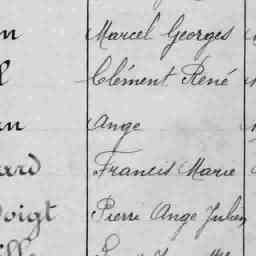 n Marcel Georges
l Clément René
en Ange
ard Francis Marie
doigt Pierre Ange Julien
ille